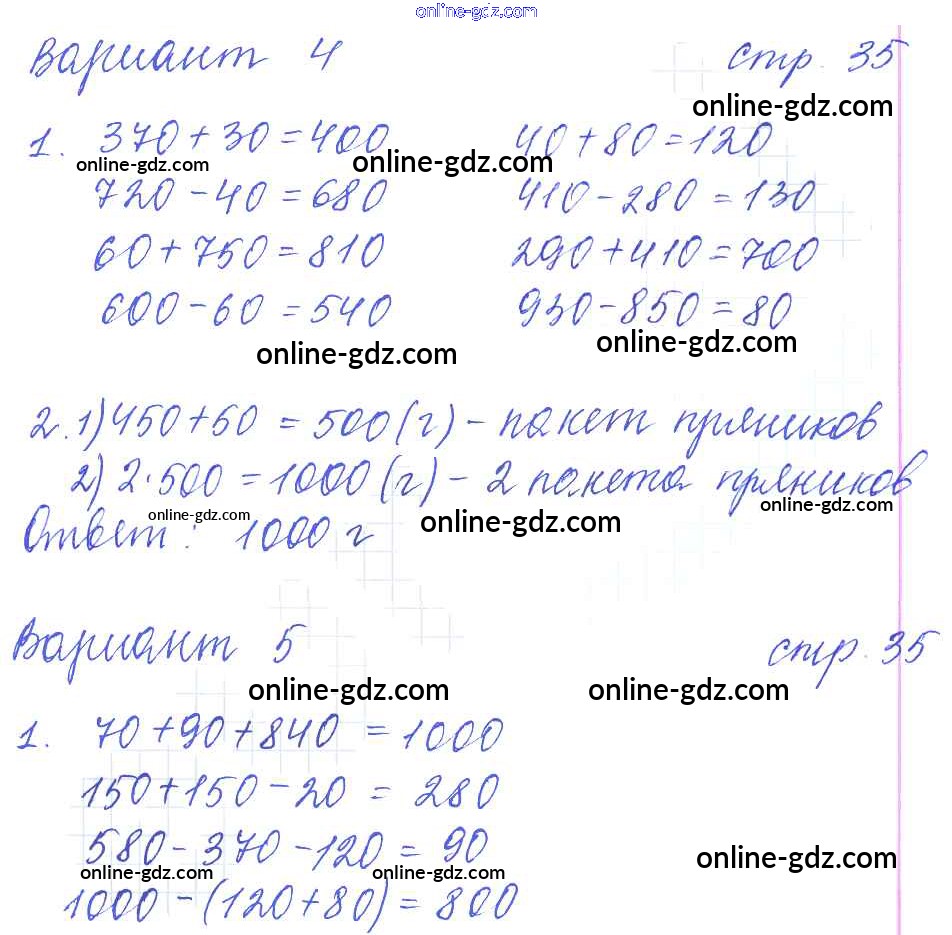 online-gdz.com
Вариант 4 стр. 35
online-gdz.com
1. 370 + 30 = 400 40 + 80 = 120
online-gdz.com online-gdz.com online-gdz.com
720 - 40 = 680 410 - 280 = 130
60 + 750 = 810 290 + 410 = 700
600 - 60 = 540 930 - 850 = 80
online-gdz.com online-gdz.com
2. 1) 450 + 50 = 500 (г) - пакет пряников
2) 2 · 500 = 1000 (г) - 2 пакета пряников
online-gdz.com online-gdz.com online-gdz.com
Ответ: 1000 г
Вариант 5 стр. 35
online-gdz.com online-gdz.com
1. 70 + 90 + 840 = 1000
150 + 150 - 20 = 280
580 - 370 - 120 = 90
online-gdz.com online-gdz.com online-gdz.com
1000 - (120 + 80) = 800